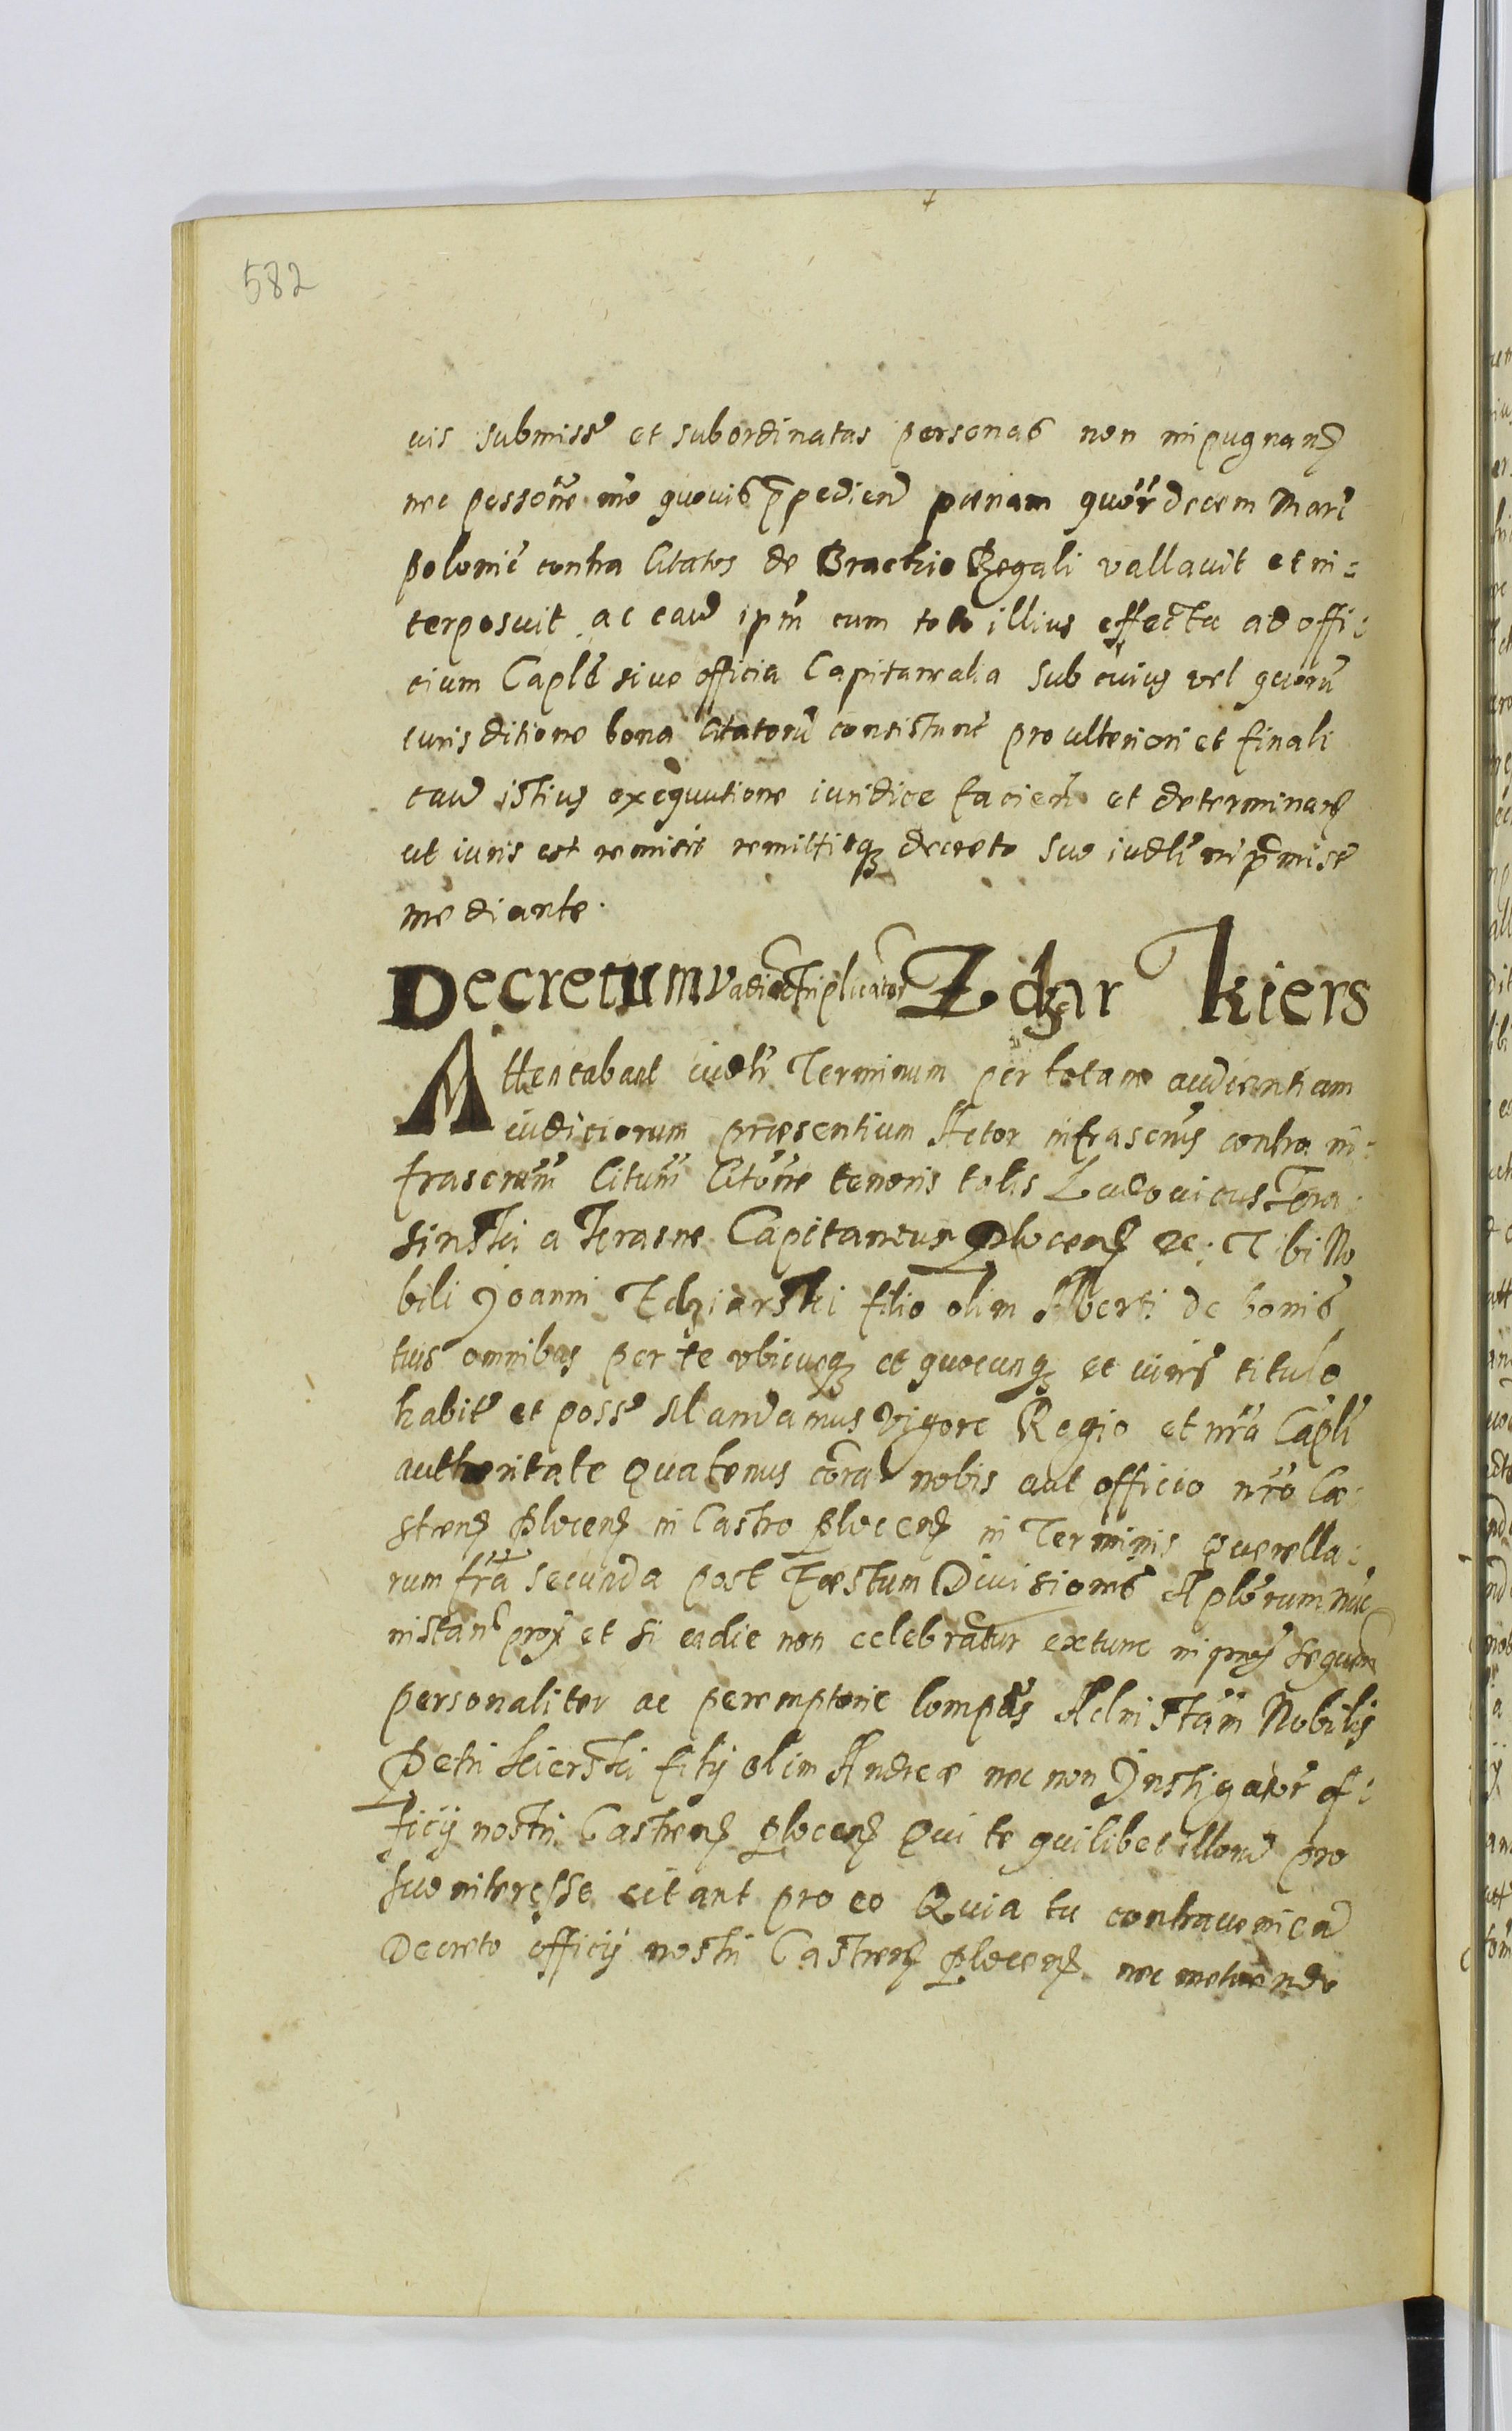 582
uis submiss et subordinatas personas non impugnan
nec possone ino quouis ppedien pœnam quor decem Marc
polonic contra Citatos de Brachio Regali vallauit et in=
terposuit ac cau ipm cum toto illius effectu ad offi:
cium Caple siue officia Capitanealia sub cuius vel quoru
iurisditione bona Citatoru consistunt pro ulteriori et finali
cau istius exequutione iuridice facien et determinan
ut iuris est remisit remittitq decreto suo iudli in pmiss
mediante.
Decretum Vadior Triplicator Zdzar Kiers
Attentabant iudli Terminum per totam audientiam
iudiciorum præsentium Actor infrascrius contra in:
frascrum Citum Citone tenoris talis Ludouicus
sinski a Krasne Capitaneus Plocens ec: Tibi No
bili Joanni Zdziarski filio olim Alberti de bonis
tuis omnibus per te vbicunq et quocunq et iuris titulo
habit et poss Mandamus Vigore Regio et nra Capli
authoritate Quatenus coram nobis aut officio nro Ca:
strens Plocens in Castro Plocens in Terminis Querella:
rum fra secunda post Festum Diuisionis Aplorum nunc
instan prox et si eadie non celebratur extunc in prox sequen
personaliter ac peremptorie compas Ad instam Nobilis
Petri Kierski filij olim Andreæ nec non Instigator of:
ficij nostri Castrens Plocens Qui te quilibet illoru pro
suo interesse citant pro eo Quia tu contraueniea
Decreto officij nostri Castrens Plocens nec metuendo